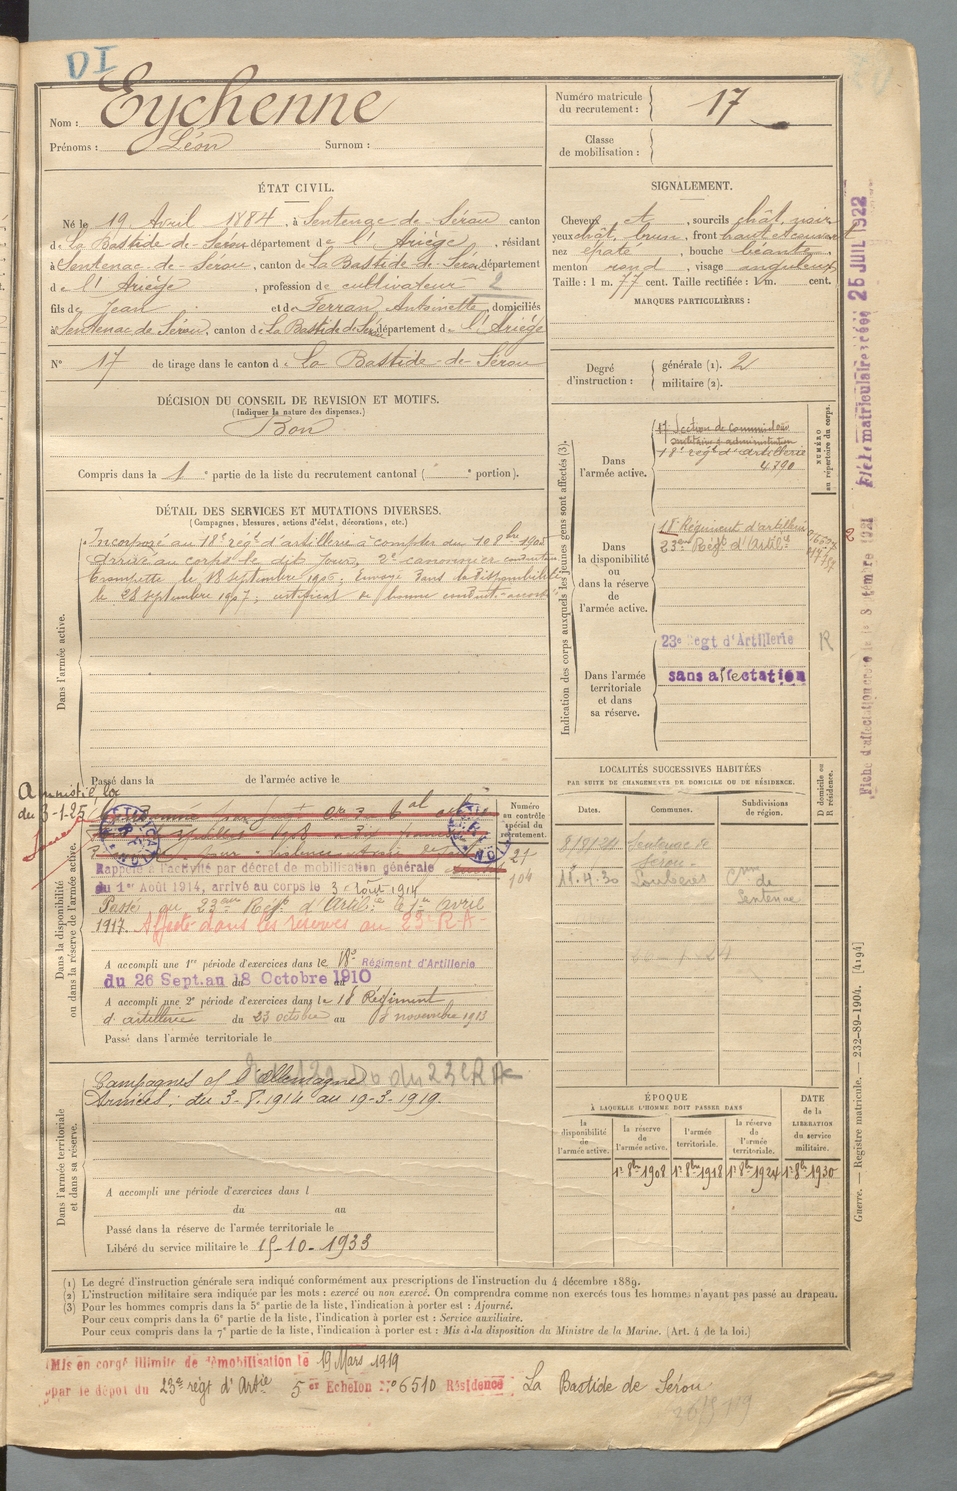 DI
Nom : Eychenne
Prénoms : Léon Surnom :
Numéro matricule du recrutement : 17
Classe de mobilisation :
ÉTAT CIVIL.
Né le 19 Avril 1884, à Sentenac-de-Sérou canton
de La Bastide-de-Sérou département de l'Ariège, résidant
à Sentenac-de-Sérou, canton de La Bastide-de-Sérou département
de l'Ariège, profession de cultivateur 2
fils de Jean et de Ferran Antoinette, domiciliés
à Sentenac de Sérou, canton de La Bastide de Sérou département de l'Ariège
N° 17 de tirage dans le canton de La Bastide-de-Sérou
SIGNALEMENT.
Cheveux et, sourcils chât. noir
yeux chât. brun, front haut et couvert
nez épaté, bouche béante,
menton rond, visage anguleux
Taille : 1 m. 77 cent. Taille rectifiée : 1 m. cent.
MARQUES PARTICULIÈRES :
Degré d'instruction : générale (1). 2
militaire (2).
DÉCISION DU CONSEIL DE REVISION ET MOTIFS.
(Indiquer la nature des dispenses.)
Bon
Compris dans la 1e partie de la liste du recrutement cantonal ( e portion).
DÉTAIL DES SERVICES ET MUTATIONS DIVERSES.
(Campagnes, blessures, actions d'éclat, décorations, etc.)
Dans l'armée active.
Incorporé au 18e régt d'artillerie à compter du 10 8bre 1905
arrivé au corps le dit jour, 2e canonnier conducteur
trompette le 18 septembre 1906; Envoyé dans la disponibilité
le 28 septembre 1907; certificat de bonne conduite accordé
Passé dans la de l'armée active le
Indication des corps auxquels les jeunes gens sont affectés (3).
NUMÉRO au répertoire du corps.
Dans l'armée active.
17 Section de Commis
18e régt d'artillerie
4.790
Dans la disponibilité ou dans la réserve de l'armée active.
18 Régiment d'artillerie
23ème Régt d'Artilie
Dans l'armée territoriale et dans sa réserve.
23e Regt d'Artillerie R
sans affectation
Fiche matriculaire créée 25 JUIL 1922
Amnistié loi
du 3-1-25
Dans la disponibilité ou dans la réserve de l'armée active.
Numéro au contrôle spécial du recrutement.
21
104
Rappelé à l'activité par décret de mobilisation générale
du 1er Août 1914, arrivé au corps le 3 août 1914
Passé au 23ème Régt d'Artilie le 1er avril
1917. Affecté dans les réserves au 23e RA
A accompli une 1re période d'exercices dans le 18e Régiment d'Artillerie
du 26 Sept. au 18 Octobre 1910
A accompli une 2e période d'exercices dans le 18 Régiment
d'artillerie du 23 octobre au 8 novembre 1913
Passé dans l'armée territoriale le
LOCALITÉS SUCCESSIVES HABITÉES
PAR SUITE DE CHANGEMENTS DE DOMICILE OU DE RÉSIDENCE.
Dates. Communes. Subdivisions de région. D domicile ou R résidence.
Sentenac de Sérou
11.4.30
Sentenac
Dans l'armée territoriale et dans sa réserve.
du 23e RA
Campagnes d l'allemagne
du 3-8.1914 au 19-3-1919.
A accompli une période d'exercices dans l
du au
Passé dans la réserve de l'armée territoriale le
Libéré du service militaire le 15-10-1933
ÉPOQUE
À LAQUELLE L'HOMME DOIT PASSER DANS
DATE de la LIBÉRATION du service militaire.
la disponibilité de l'armée active. la réserve de l'armée active. l'armée territoriale. la réserve de l'armée territoriale.
1er 8bre 1908 1er 8bre 1918 1er 8bre 1924 1er 8bre 1930
Guerre. — Registre matricule. — 232-89-1904. [4194]
(1) Le degré d'instruction générale sera indiqué conformément aux prescriptions de l'instruction du 4 décembre 1889.
(2) L'instruction militaire sera indiquée par les mots : exercé ou non exercé. On comprendra comme non exercés tous les hommes n'ayant pas passé au drapeau.
(3) Pour les hommes compris dans la 5e partie de la liste, l'indication à porter est : Ajourné.
Pour ceux compris dans la 6e partie de la liste, l'indication à porter est : Service auxiliaire.
Pour ceux compris dans la 7e partie de la liste, l'indication à porter est : Mis à la disposition du Ministre de la Marine. (Art. 4 de la loi.)
Mis en congé illimité de démobilisation le 19 Mars 1919
par le dépôt du 23e régt d'Artie 5er Echelon N° 6510 Résidence La Bastide de Sérou